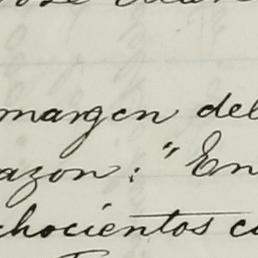 margen del
azon: "En
chocientos c